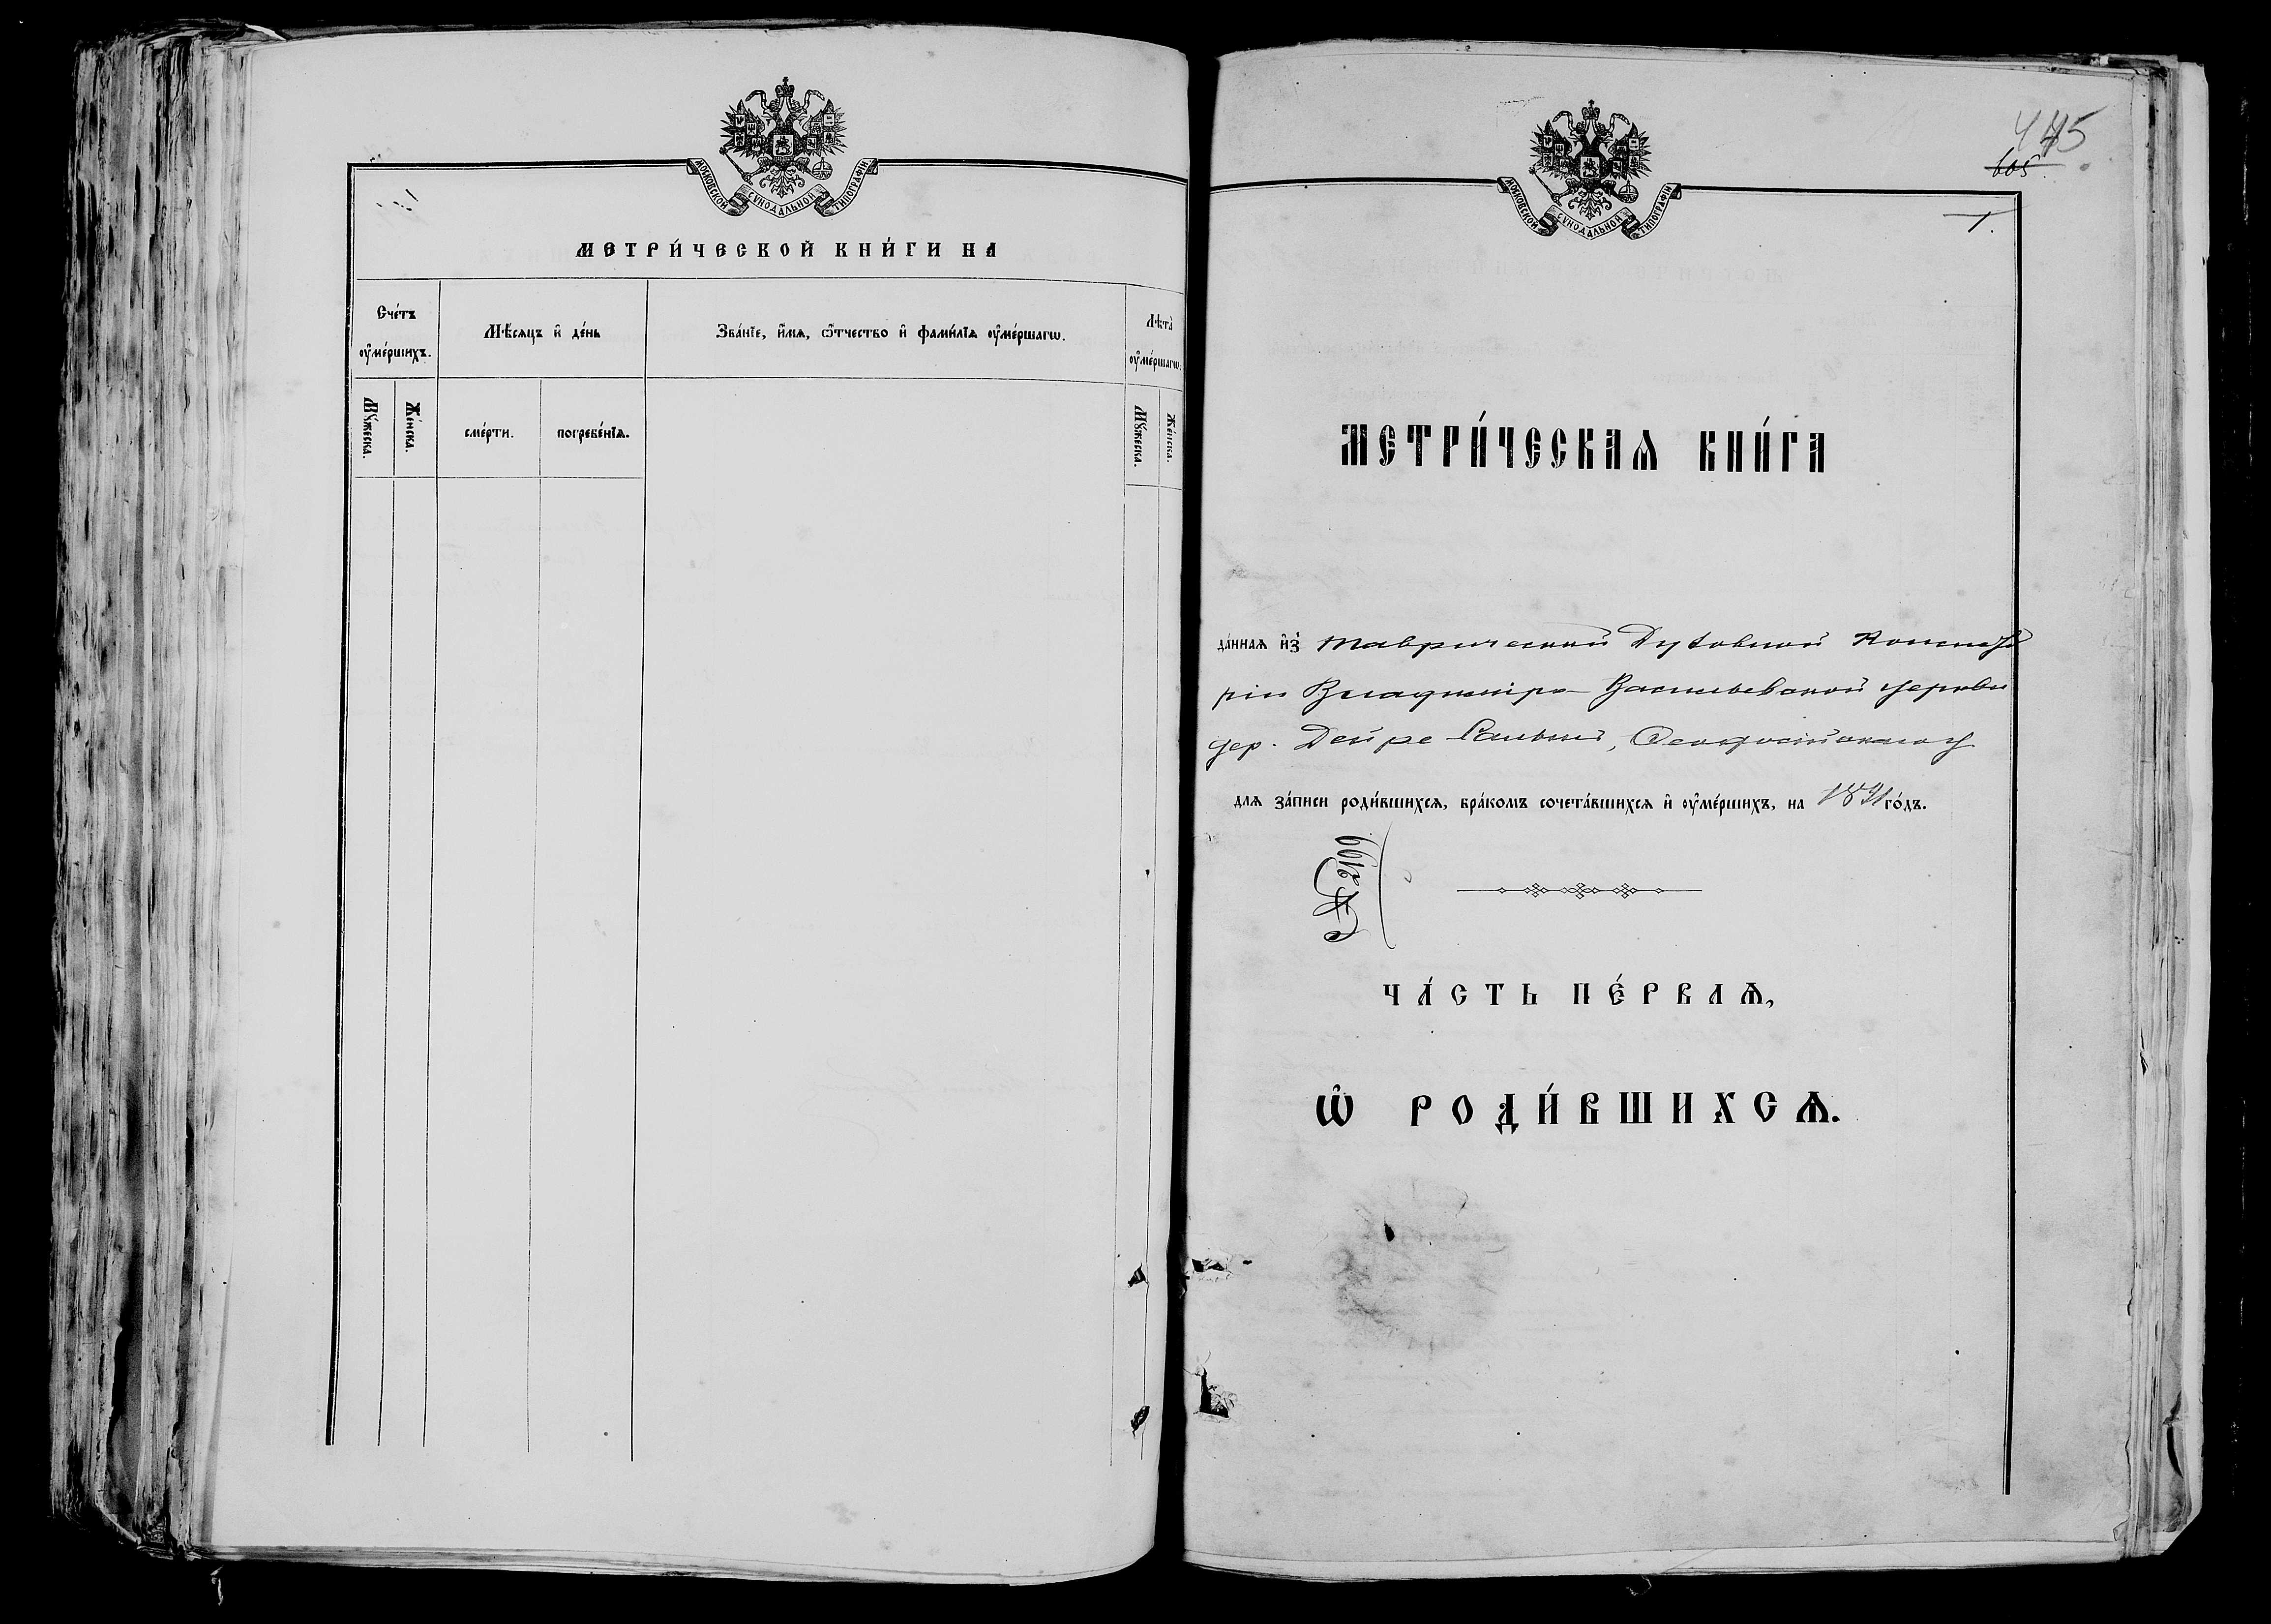 МОСКОВСКОЙ СѴНОДАЛЬНОЙ ТИПОГРАФІИ
МЕТРИ́ЧЕСКОЙ КНИ́ГИ НА
Сче́тъ ᲂу҆ме́ршихъ.
Мѣ́сяцъ и҆ де́нь
Зва́нїе, и҆́мѧ, ѻ҆́тчество и҆ фами́лїѧ ᲂу҆ме́ршагѡ.
Лѣта̀ ᲂу҆ме́ршагѡ.
Мꙋ́жеска.
Же́нска.
сме́рти.
погребе́нїѧ.
Мꙋ́жеска.
Же́нска.
445
605.
МОСКОВСКОЙ СѴНОДАЛЬНОЙ ТИПОГРАФІИ
1.
МЕТРИ́ЧЕСКАѦ КНИ́ГА
да́ннаѧ и҆з̾ Таврической Духовной Консисто
ріи Владиміро-Васильевской церкви
дер. , Ѳеодосійскаго у
длѧ за́писи роди́вшихсѧ, бра́комъ сочета́вшихсѧ и҆ ᲂу҆ме́ршихъ, на 1891 го́дъ.
№ 2199
ЧА́СТЬ ПЕ́РВАѦ,
Ѡ҆ РОДИ́ВШИХСѦ.